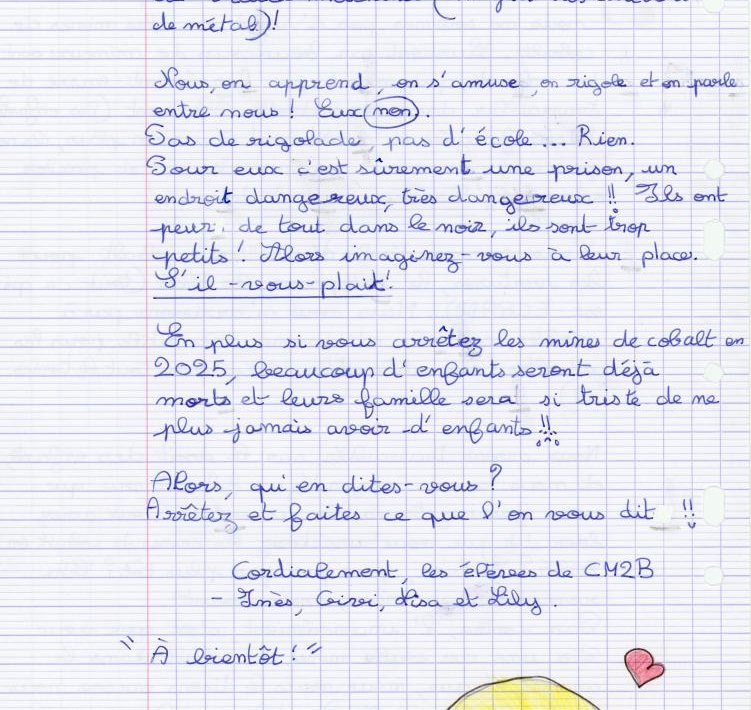 de métal)!
Nous, on apprend, on s'amuse, on rigole et on parle
entre nous ! Eux non.
Pas de rigolade, pas d'école... Rien.
Pour eux c'est sûrement une prison, un
endroit dangereux, très dangereux !! Ils ont
peur de tout dans le noir, ils sont trop
petits ! Alors imaginez-vous à leur place.
S'il-vous-plait!
En plus si vous arrêtez les mines de cobalt en
2025, beaucoup d'enfants seront déjà
morts et leurs famille sera si triste de ne
plus jamais avoir d'enfants !!
Alors, qu'en dites-vous ?
Arrêtez et faites ce que l'on vous dit !!
Cordialement, les élèves de CM2B
- Inès, et Lily.
" À bientôt ! "